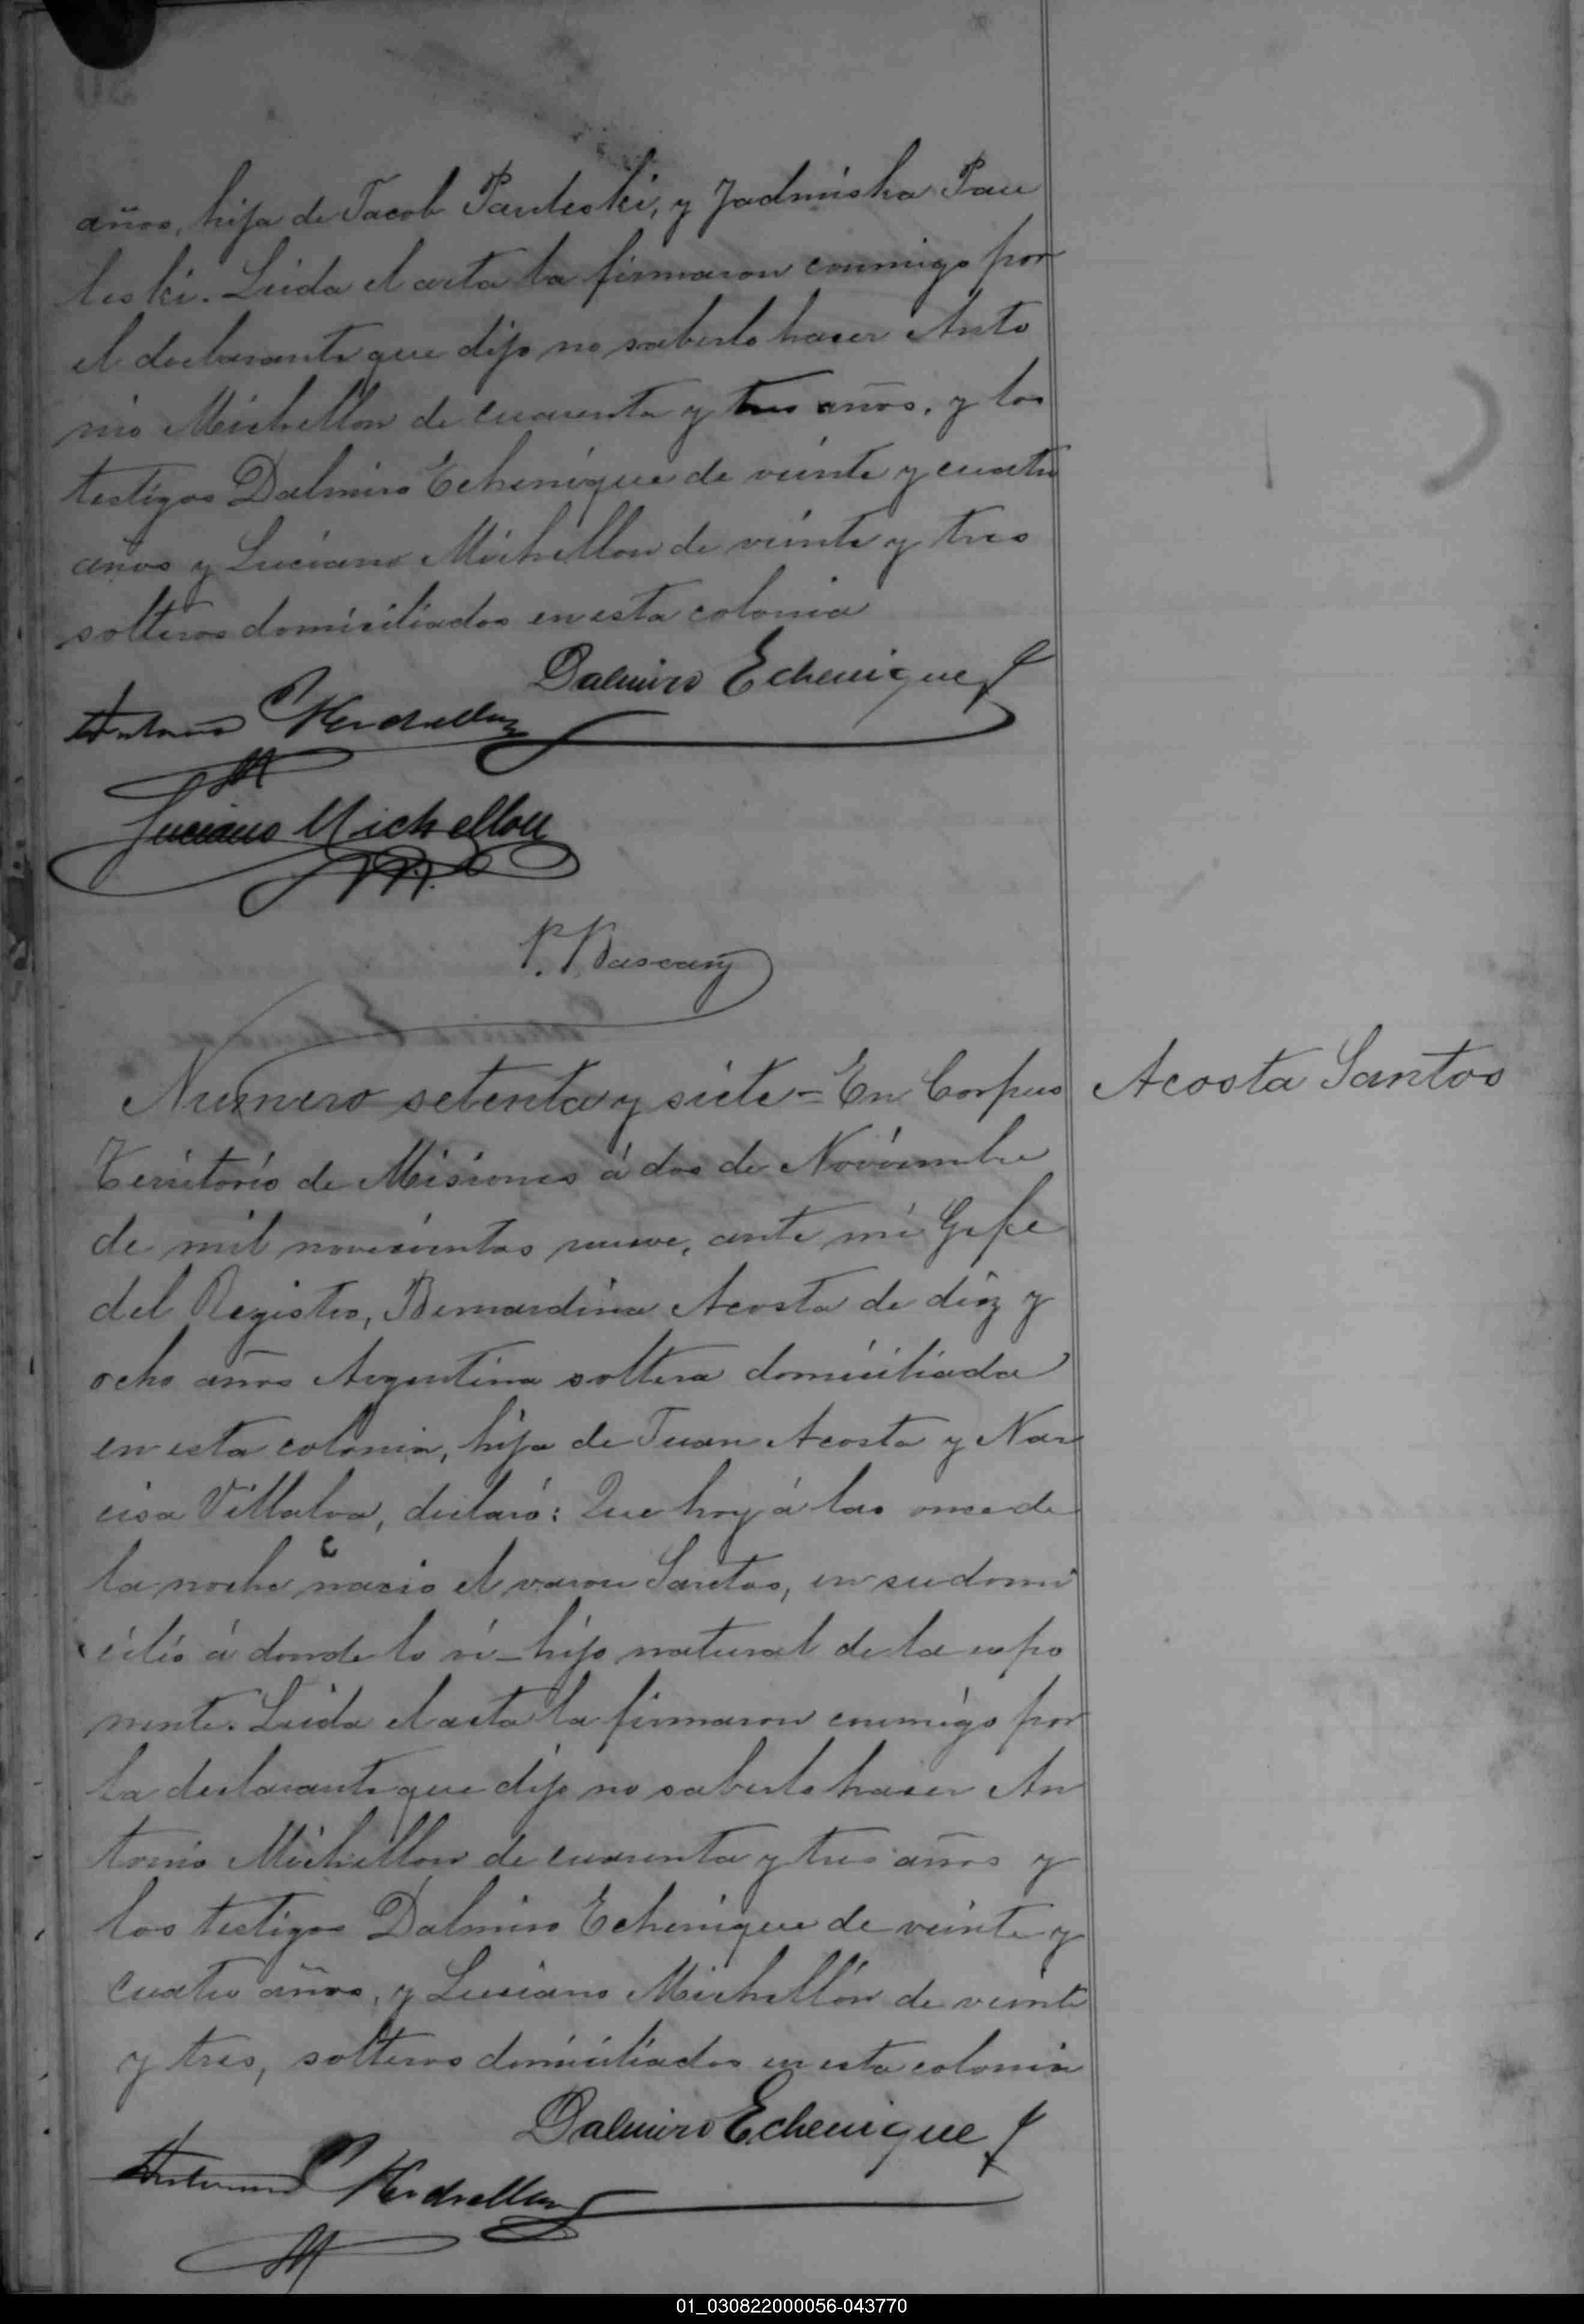 años, hija de Jacob Pauleski, y Jadmiska Pau
leski. Leida el acta la firmaron conmigo por
el declarante que dijo no saberlo hacer Anto
nio Michellon de cuarenta y tres años, y los
testigos Dalmiro Echenique de veinte y cuatro
años y Luciano Michellon de veinte y tres
solteros domiciliados en esta colonia
Dalmiro Echenique
Antonio Michellon
Luciano Michellon
Numero setenta y siete = En Corpus
Acosta Santos
Territorio de Misiones á dos de Noviembre
de mil novecientos nueve, ante mi Gefe
del Registro, Bernardina Acosta de diez y
ocho años Argentina soltera domiciliada
en esta colonia, hija de Juan Acosta y Nar
cisa Villalva, declaró: Que hoy á las once de
la noche nacio el varon Santos, en su domi
cilio á donde lo vi - hijo natural de la expo
nente. Leida el acta la firmaron conmigo por
la declarante que dijo no saberlo hacer An
tonio Michellon de cuarenta y tres años y
los testigos Dalmiro Echenique de veinte y
cuatro años, y Luciano Michellón de veinte
y tres, solteros domiciliados en esta colonia
Dalmiro Echenique
Antonio Michellon
01_030822000056-043770